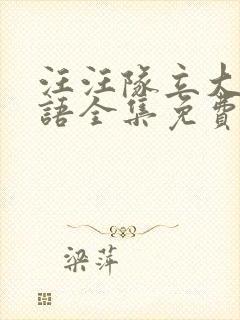 汪汪隊立大
語全集免費
梁萍